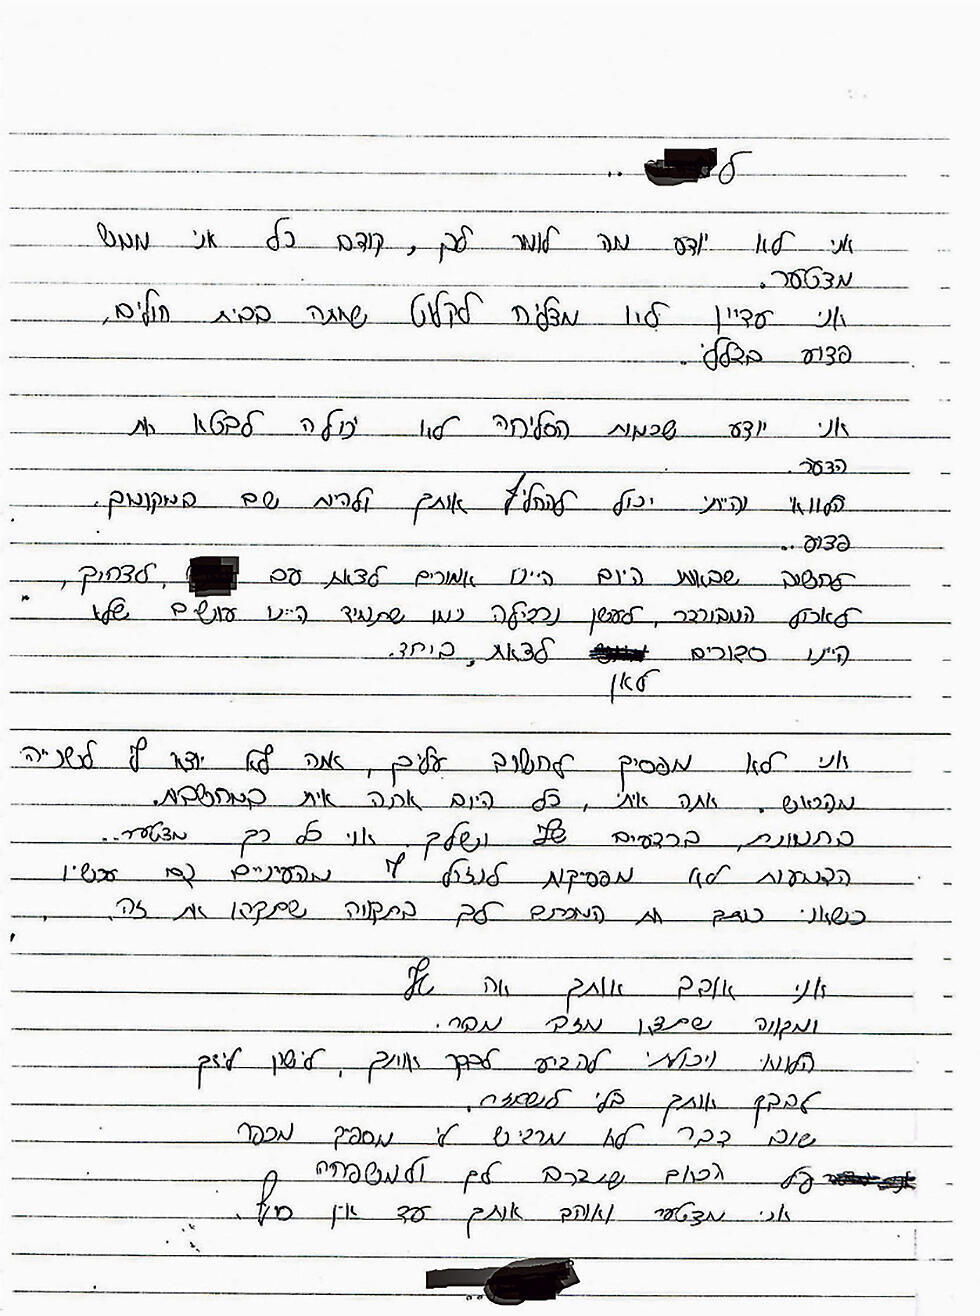 ל ..
אני לא יודע מה לומר לך, קודם כל אני ממש
מצטער.
אני עדיין לא מצליח לקלוט שאתה בבית חולים,
פצוע בגללי..
אני יודע שכמות הסליחה לא יכולה לבטא את
הצער.
הלוואי והייתי יכול להחליף אותך ולהיות שם במקומך.
פצוע..
לחשוב שבאותו היום היינו אמורים לצאת עם , לצחוק,
לאכול המבורגר, לעשן נרגילה כמו שתמיד היינו עושים שלא
היינו סגורים לצאת, ביחד.
לאן
אני לא מפסיק לחשוב עליך, אתה לא יוצא לי לשנייה
מהראש. אתה איתי, כל היום אתה איתי במחשבות.
בתמונות, ברגעים שלי ושלך. אני כל כך מצטער..
הדמעות לא מפסיקות לנזול לי מהעיניים גם עכשיו
כשאני כותב את המכתב לך בתקווה שתקרא את זה.
אני אוהב אותך אח שלי
ומקווה שתצא מזה מהר.
הלוואי ויכולתי להגיע לבקר אותך, לישון לידך
לחבק אותך בלי לשחרר.
שום דבר לא מרגיש לי מספיק מכפר
על הכאב שגרם לך ולמשפחה
אני מצטער ואוהב אותך עד אין סוף.